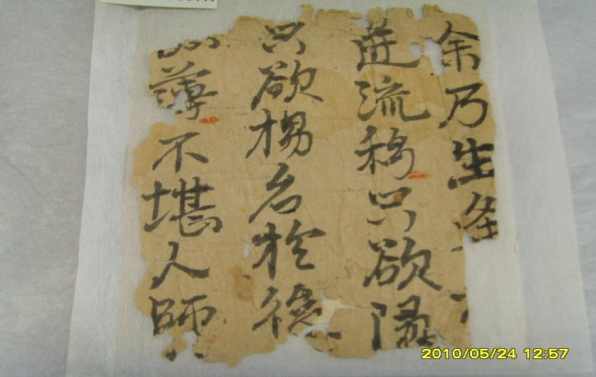 余乃生
逆流移只欲隱
只欲楊名於德
薄不堪人師
2010/05/24 12:57